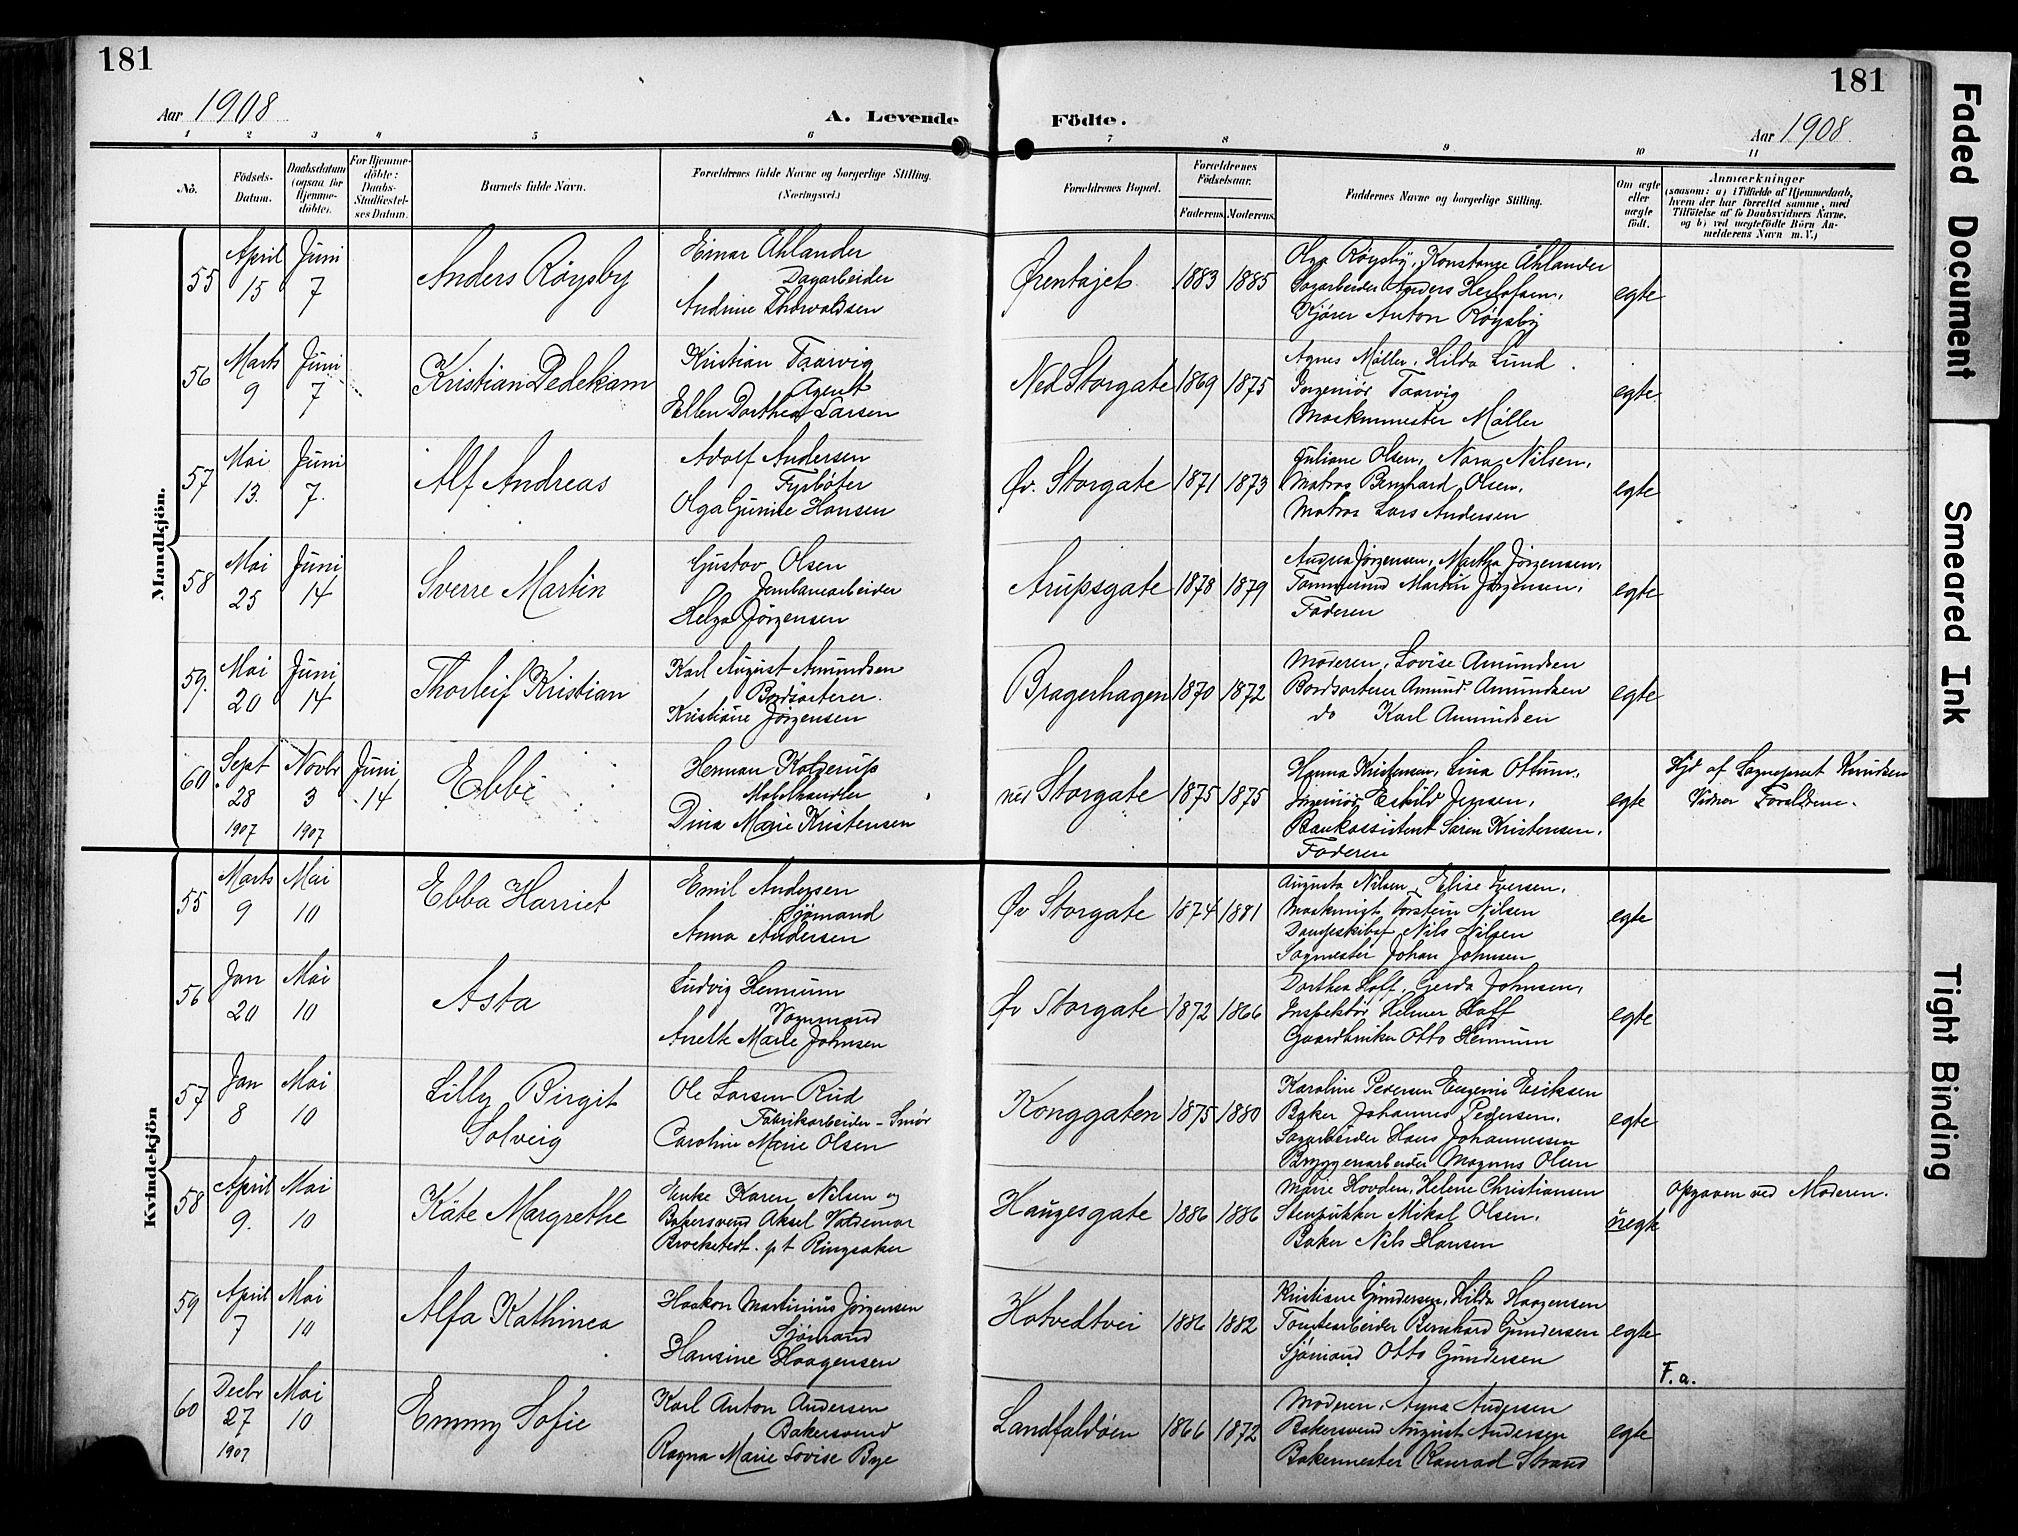 181
181
Aar 1908
A. Levende
Födte.
Aar 1908
1 2 3 4 5 6 7 8 9 10 11
No.
Födsels-Datum.
Daabsdatum (ogsaa for Hjemmedöbte).
For Hjemmedöbte: Daabs-Stadfæstelses Datum.
Barnets fulde Navn.
Forældrenes fulde Navne og borgerlige Stilling. (Næringsvei.)
Forældrenes Bopæl.
Forældrenes Födselsaar.
Faderens Moderens
Faddernes Navne og borgerlige Stilling.
Om ægte eller uægte födt.
Anmærkninger
(saasom: a) i Tilfælde af Hjemmedaab, hvem der har forrettet samme, med Tilföielse af to Daabsvidners Navne, og b) ved uægtefödte Börn Anmelderens Navn m. V.)
Mandkjön.
55 April 15 Juni 7 Anders Röysby
Einar Ahlander
Dagarbeider
Andrine Thorwaldsen
Ørentajet 1883 1885
Olga Röysby, Konstanze Åhlander
Dagarbeider Anders Herlofsen,
Kjörer Anton Röysby
egte
56 Marts 9 Juni 7 Kristian Dedekam
Kristian Taarvig
Agent
Ellen Dorthea Larsen
Ned Storgate 1869 1875
Agnes Möller, Hilda Lund
Ingeniör Taarvig
Maskinmester Möller
egte
57 Mai 13. Juni 7. Alf Andreas
Adolf Andersen
Fyrböter
Olga Gunile Hansen
Øv. Storgate 1871 1873
Juliane Olsen, Nora Nilsen,
Matros Bernhard Olsen,
Matros Lars Andersen
egte
58 Mai 25 Juni 14 Sverre Martin
Gustav Olsen
Jernbanearbeider
Helga Jörgensen
Arupsgate 1878 1879
Andrea Jörgensen, Martha Jörgensen,
Tömmermd Martin Jörgensen,
Faderen
egte
59. Mai 20 Juni 14 Thorleif Kristian
Karl August Amundsen
Bordsorterer.
Kristiane Jörgensen
Bragerhagen 1870 1872
Moderen, Lovise Amundsen
Bordsorterer Amund Amundsen
do Karl Amundsen
egte
60 Sept 28 1907 Novbr 3 1907 Juni 14 Ebbe
Herman Kolderup
Möbelhandler
Dina Marie Kristensen
ned Storgate 1875 1875
Hanna Kristensen, Lina Ottum,
Ingeniör Eskild Jensen,
Bankassistent Sören Kristensen,
Faderen
egte
Hjd af Sognepræst Knudsen
Vidner Forældrene.
Kvindekjön
55 Marts 9 Mai 10 Ebba Harriet
Emil Andersen
Sjömand
Anna Andersen
Øv Storgate 1874 1881
Augusta Nilsen, Elise Iversen,
Maskinist Torstein Nilsen
Nils Nilsen
Sagmester Johan Johnsen
egte
56 Jan 20 Mai 10 Asta
Ludvig Hennum
Vognmand
Anette Marie Johnsen
Øv Storgate 1872 1866
Dorthea Hoff, Gerda Johnsen,
Inspektör Helmer Hoff
Gaardbruker Otto Hennum
egte
57 Jan 8 Mai 10 Lilly Birgit
Solveig
Ole Larsen Rud
Fabrikarbeider - Smör
Caroline Marie Olsen
Konggaten 1875 1880
Karoline Pedersen Eugenie Eriksen
Baker Johannes Pedersen,
Sagarbeider Hans Johannessen
Bryggeriarbeider Magnus Olsen
egte
58 April 9. Mai 10 Käte Margrethe
Enke Karen Nilsen og
Bakersvend Aksel Valdemar
Brockstedt. pt Ringsaker
Haugesgate 1886 1886
Marie Hovden, Helene Christiansen
Stenpukker Mikal Olsen,
Baker Nils Hansen
uegte
Opgaven ved Moderen.
59 April 7 Mai 10 Alfa Kathinca
Haakon Martinius Jörgensen
Sjömand
Hansine Haagensen
Hotvedtvei 1886 1882
Kristiane Gundersen, Hilda Haagensen
Tomtearbeider Bernhard Gundersen
Sjömand Otto Gundersen
egte
F. a.
60 Decbr 27 1907 Mai 10 Emmy Sofie
Karl Anton Andersen
Bakersvend
Ragna Marie Lovise Bye
Landfaldöen 1866 1872
Moderen, Agna Andersen
Bakersvend August Andersen
Bakermester Konrad Strand
egte
Faded Document
Smeared Ink
Tight Binding